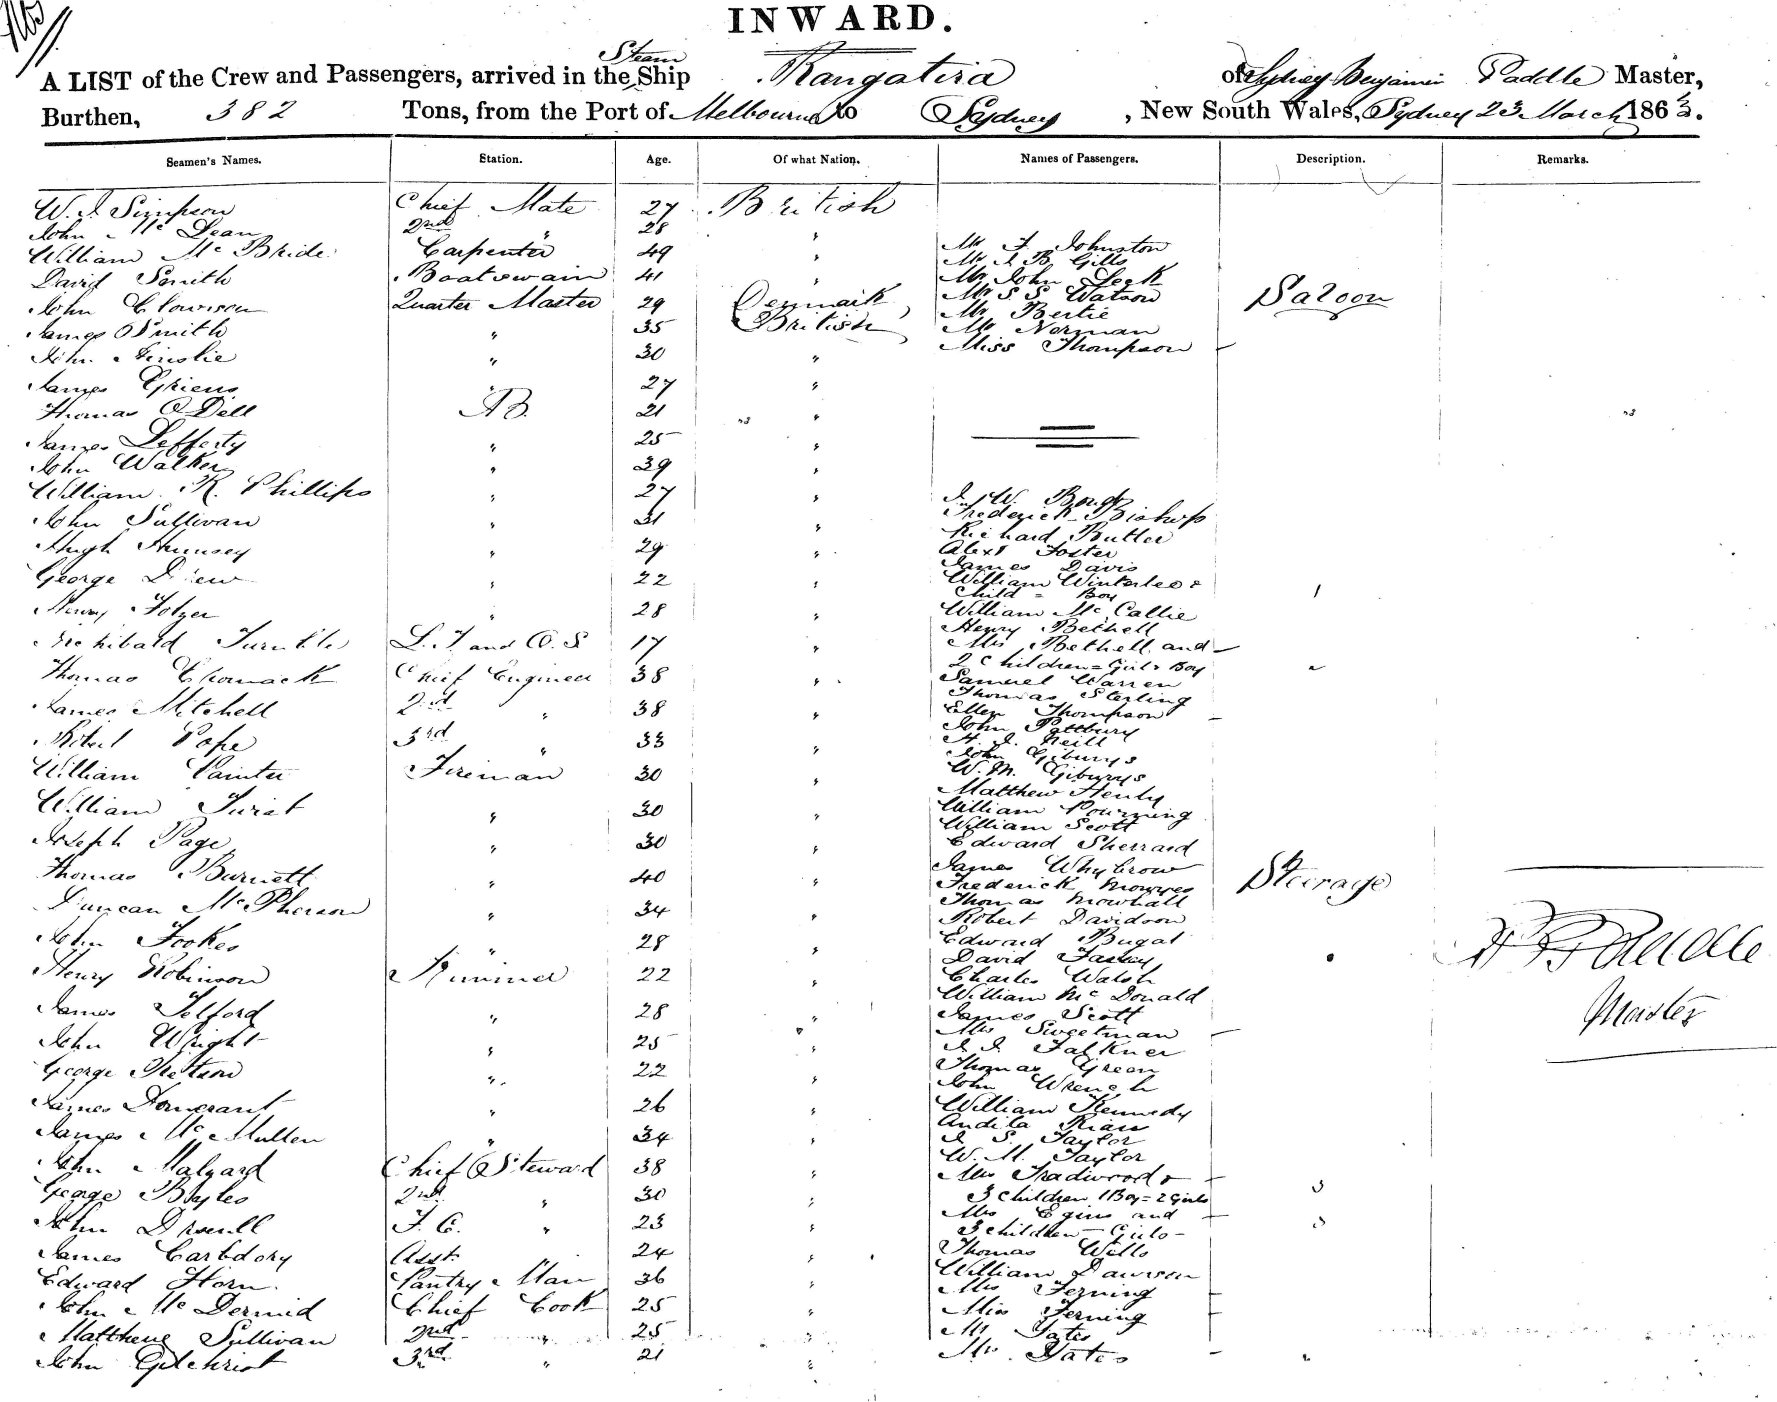 INWARD.
A LIST of the Crew and Passengers, arrived in the Steam Ship Rangatira of Sydney Benjamin Paddle Master,
Burthen, 382 Tons, from the Port of Melbourne to Sydney, New South Wales, Sydney 23 March 1863.
Seamen's Names. Station. Age. Of what Nation. Names of Passengers. Description. Remarks.
W. J. Simpson Chief Mate 27 British
John Mc Dean 2nd " 28 "
William Mc Bride Carpenter 49 " Mr J. Johnston
Mr J B Gills
David Smith Boatswain 41 " Mr John Leek
John Clowison Quarter Master 29 Denmark Mr S S Watson Saloon
Mr Bertie
James Smith " 35 British Mr Norman
John Ainslie " 30 " Miss Thompson
James 27 "
Thomas O Dell AB. 21 "
James Lefferty " 25 "
John Walker " 39 "
William R. Phillips " 27 "
J. W.
John Sullivan " 31 " Frederick Bishop
Richard Butler
Hugh " 29 " Alext Foster
James Davis
George Drew " 22 " William Winterlee &
Child = Boy
Henry Folger " 28 " William Mc Callie
Henry Bethell
Archibald Turnble L. T. and O. S 17 " Mrs Bethell and
2 Children = Girl & Boy
Thomas Chomack Chief Engineer 38 " Samuel Warren
Thomas Sterling
James Mitchell 2nd " 38 " Ellen Thompson
John Pottbury
Robert Pope 3rd " 33 " H. J. Neill
John Giburys
William Painter Fireman 30 " W. M. Giburys
Matthew Henly
William Turist " 30 " William Pourning
William Scott
Joseph Page " 30 " Edward Sherrard
Thomas Burnett " 40 " James Whybrow Steerage
Frederick
Duncan Mc Pherson " 34 " Thomas Mowhall
Robert Davidson
John Fookes " 28 " Edward Bugat
David
Henry Robinson Trimmer 22 " Charles Walsh
William Mc Donald
James Telford " 28 " James Scott
Mrs Sweetman
John Wright " 25 " J. J. Falkner
George " 22 " Thomas Green
John Wrench
James " 26 " William Kennedy
Andila Rian
James Mc Mullen " 34 " J. S. Taylor
W. M. Taylor
John Malyard Chief Steward 38 " Mrs Tradwood &
George Bayles 2nd " 30 " 3 children 1 Boy = 2 Girls
Mrs Egins and
John F. C. " 23 " 3 children Girls
James Asst. 24 " Thomas Wills
William Dawson
Edward Horn Pantry Man 36 " Mrs Ferning
John Mc Dermid Chief Cook 25 " Miss Ferning
Matthew Sullivan 2nd " 25 " Mr Yates
John Gilchrist 3rd " 21 " Mrs Yates
S B Paddle
Master